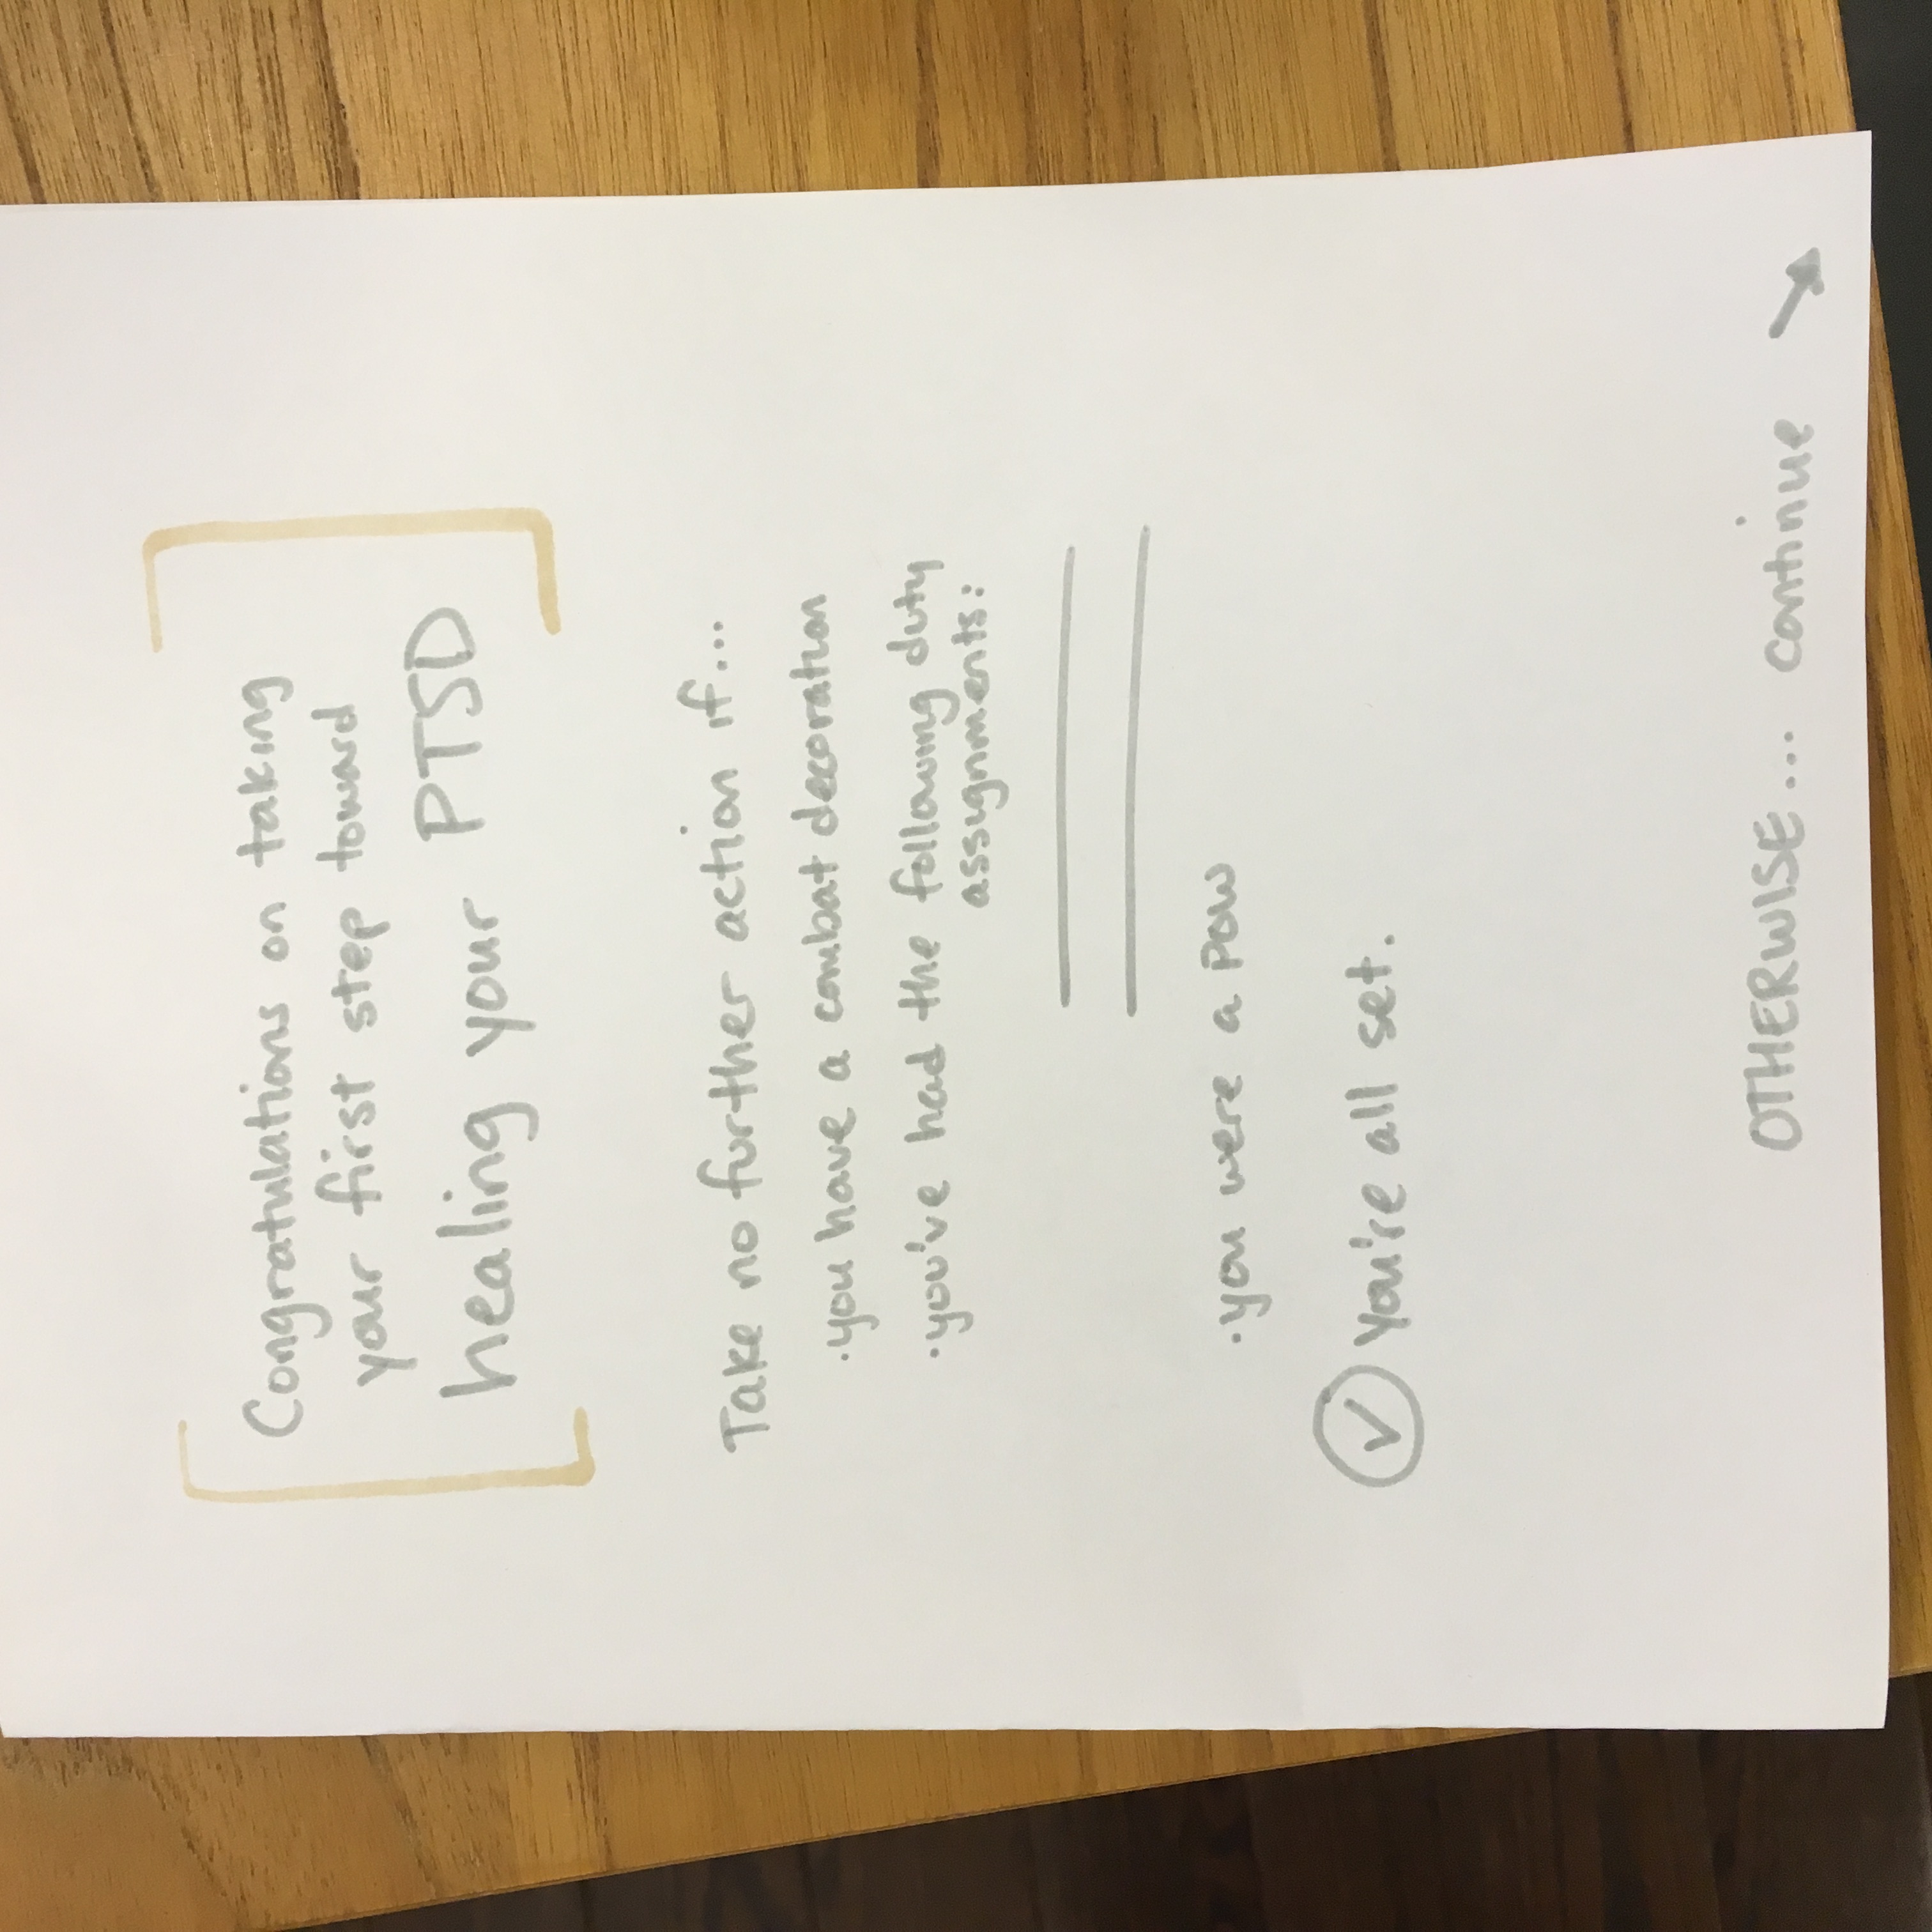 Congratulations on taking
your first step toward
healing your PTSD
Take no further action if...
·you have a combat decoration
·you've had the following duty
assignments:
·you were a POW
You're all set.
OTHERWISE... continue